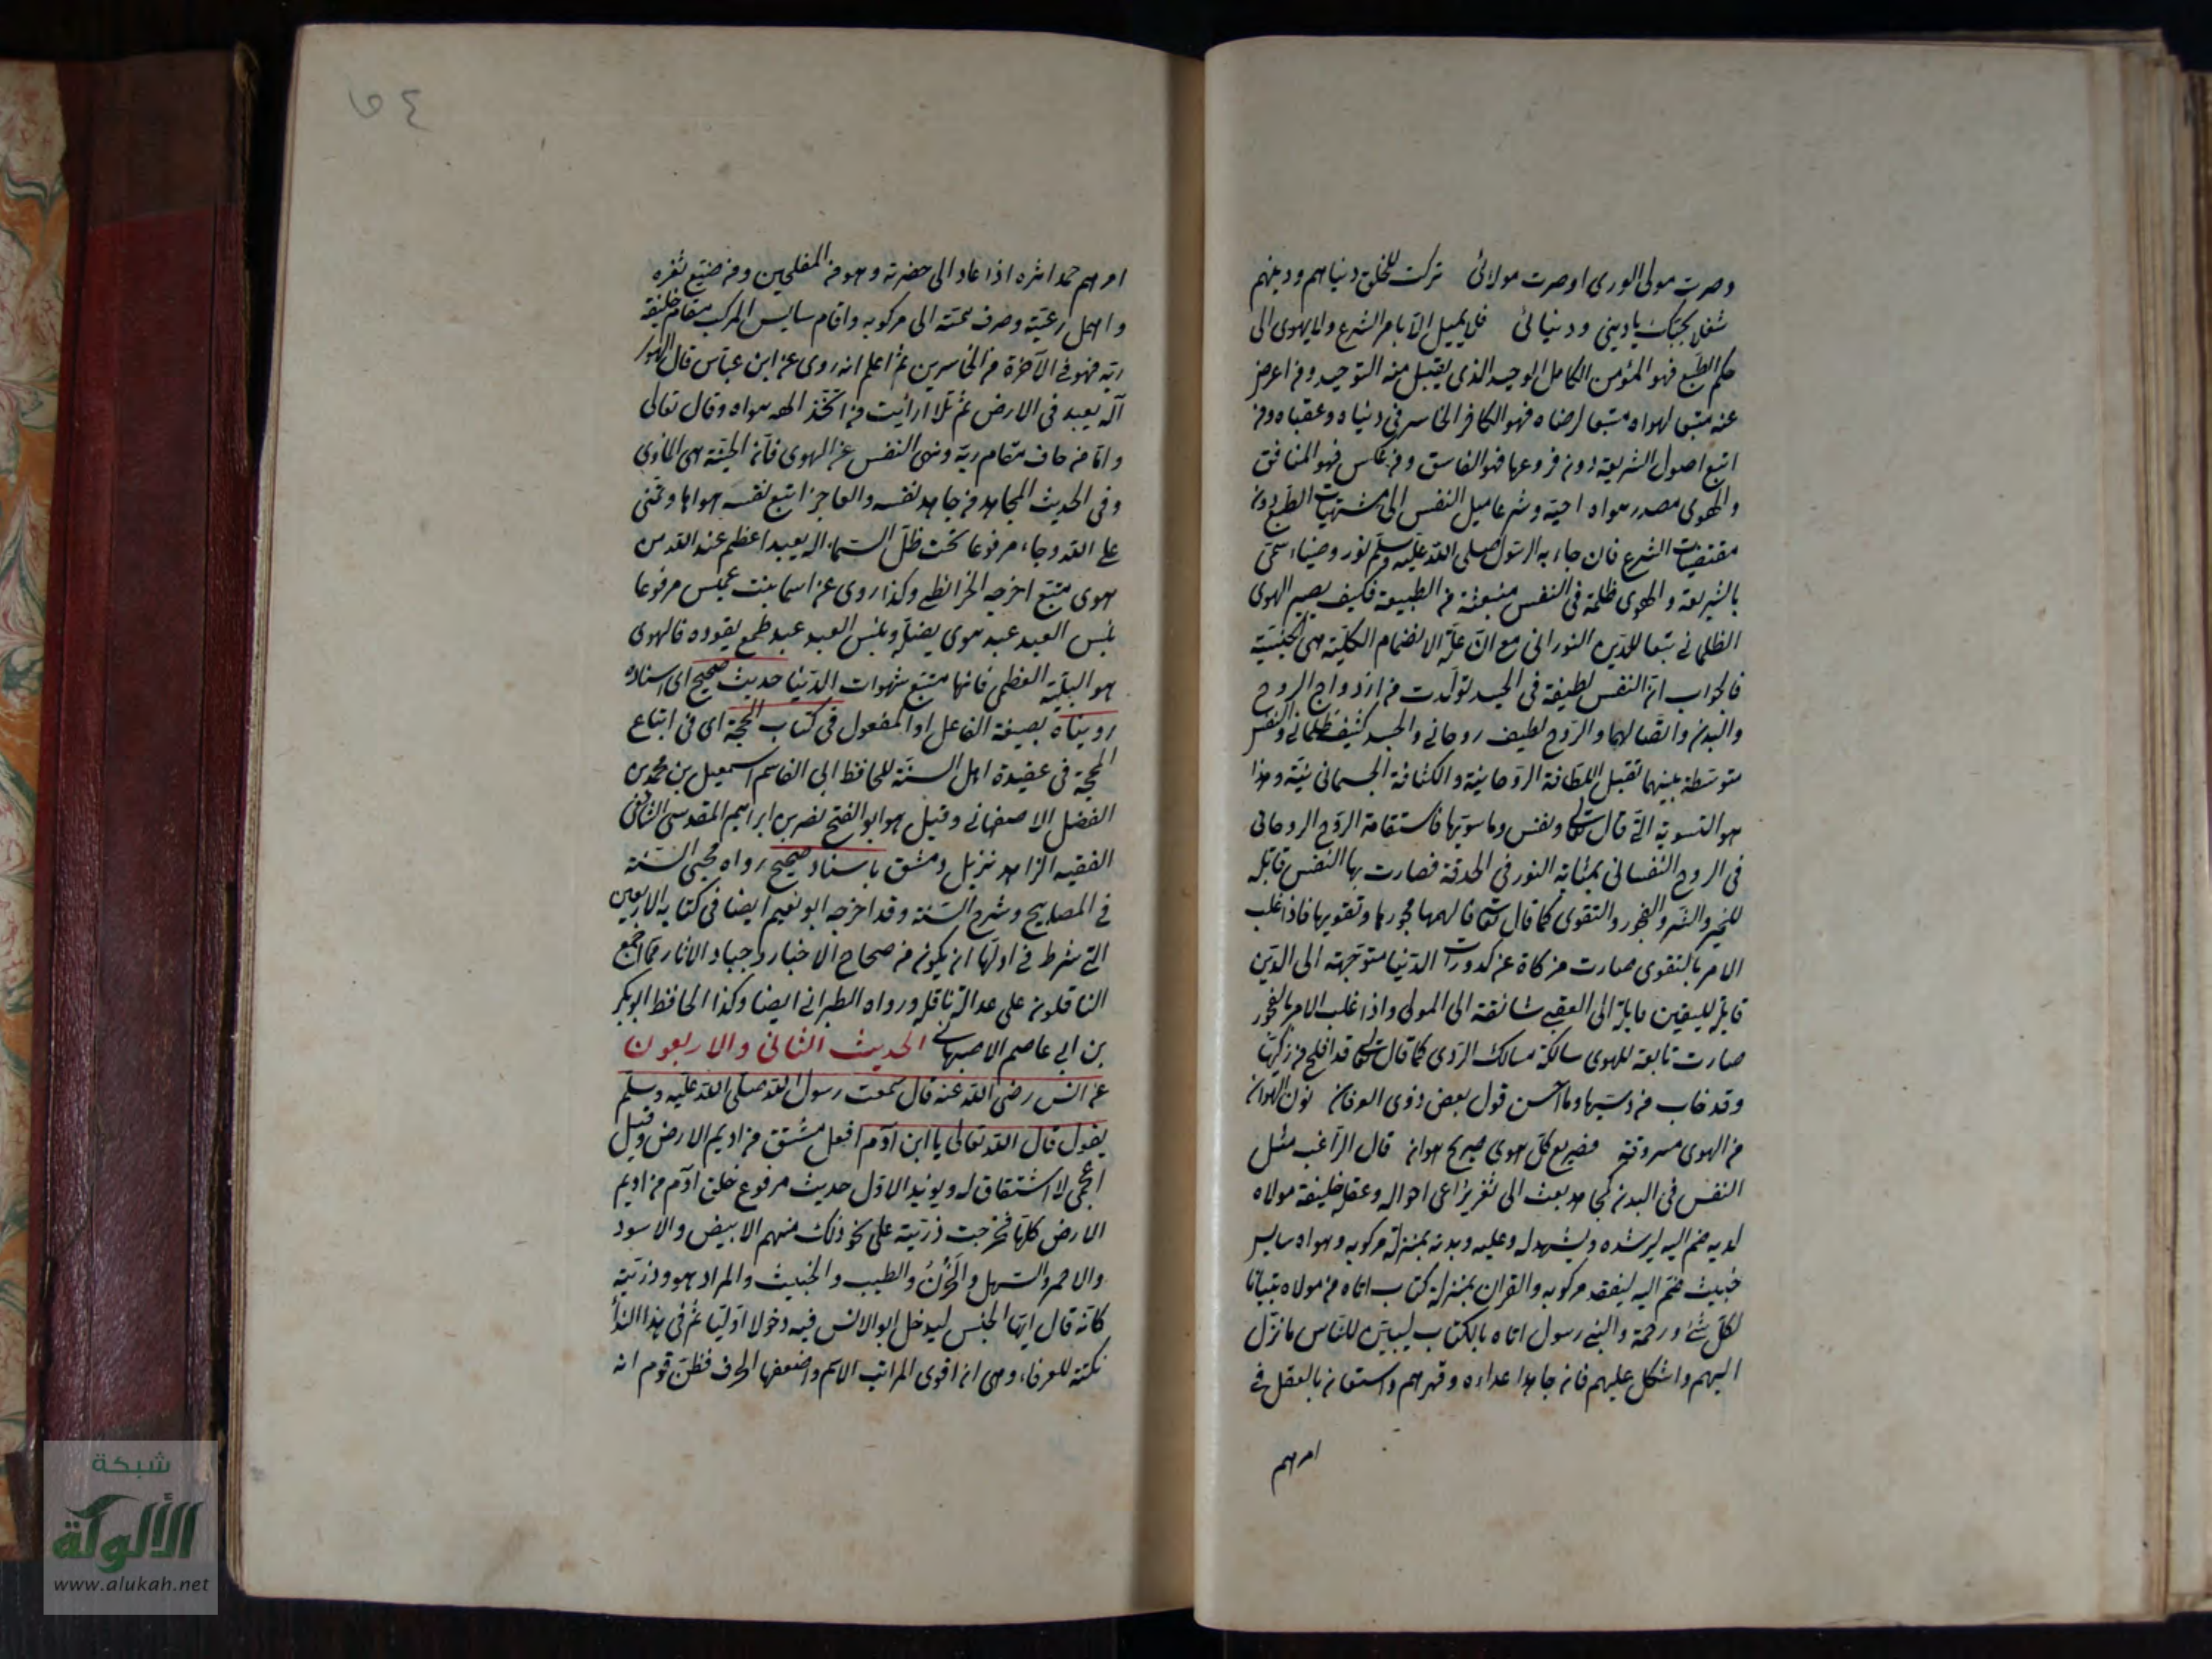 وصرت مولى الورى اوصرت مولائى تركت للخلق دنياهم ودينهم
شغلا بحبك يا دينى ودنيائى فلا يميل الا بامر الشرع ولا يهوى الى
حكم الطبع فهو المؤمن الكامل الوحيد الذى يقبل منه التوحيد ومن اعرض
عنه متبعا لهواه متبعا لرضاه فهو الكافر الخاسر فى دنياه وعقباه ومن
اتبع اصول الشريعة دون فروعها فهو الفاسق ومن عكس فهو المنافق
والهوى مصدر هواه احبه وشرعا ميل النفس الى مشتهيات الطبع دون
مقتضيات الشرع فان جاء به الرسول صلى الله عليه وسلم نور وضياء سمى
بالشريعة والهوى ظلمة فى النفس منبعثة من الطبيعة فكيف يصير الهوى
الظلمانى تبعا للدين النورانى مع ان علة الانضمام الكلية هى الجنسية
فالجواب ان النفس لطيفة فى الجسد تولدت من ازدواج الروح
والبدن واتصالهما والروح لطيف روحانى والجسد كثيف ظلمانى والنفس
متوسطة بينهما تقبل اللطافة الروحانية والكثافة الجسمانية وهذا
هو التسوية التى قال تعالى ونفس وما سويها فاستقامة الروح الروحانى
فى الروح النفسانى بمثابة النور فى الحدقة فصارت بها النفس قابلة
للخير والشر والفجور والتقوى كما قال تعالى فالهمها فجورها وتقويها فاذا غلب
الامر بالتقوى صارت مزكاة عن كدورات الدنيا متوجهة الى الدين
قابلة لليقين مايلة الى العقبى شائقة الى المولى واذا غلب الامر بالفجور
صارت تابعة للهوى سالكة مسالك الردى كما قال تعالى قد افلح من زكيها
وقد خاب من دسيها وما احسن قول بعض ذوى العرفان نون الهوان
من الهوى مسروقة فصريع كل هوى صريع هوان قال الراغب مثل
النفس فى البدن كمجاهد بعث الى ثغر يراعى احواله وعقله خليفة مولاه
لديه ضم اليه ليرشده ويشهد له وعليه وبدنه بمنزلة مركوبه وهواه سايس
خبيث ضم اليه ليفقد مركوبه والقران بمنزلة كتاب اتاه من مولاه تبيانا
لكل شئ ورحمة والنبى رسول اتاه بالكتاب ليبين للناس ما نزل
اليهم واشكل عليهم فان جاهد اعداءه وقهرهم واستعان بالعقل فى
امرهم
٤٥
امرهم حمد اثره اذا عاد الى حضرته وهو من المفلحين ومن ضيع ثغره
واهمل رعيته وصرف همته الى مركوبه واقام سايس المركب مقام خليفة
ربه فهو فى الآخرة من الخاسرين ثم اعلم انه روى عن ابن عباس قال الهوى
آله يعبد فى الارض ثم تلا ارايت من اتخذ الهه هواه وقال تعالى
واما من خاف مقام ربه ونهى النفس عن الهوى فان الجنة هى الماوى
وفى الحديث المجاهد من جاهد نفسه والعاجز من اتبع نفسه هواها وتمنى
على الله وجاء مرفوعا تحت ظل السماء اله يعبد اعظم عند الله من
هوى متبع اخرجه الخرائطى وكذا روى عن اسما بنت عميس مرفوعا
بئس العبد عبد هوى يضله وبئس العبد عبد طمع يقوده فالهوى
هو البلية العظمى فانها متبع شهوات الدنيا حديث صحيح اى اسناده
رويناه بصيغة الفاعل او المفعول فى كتاب الحجة اى فى اتباع
المحجة فى عقيدة اهل السنة للحافظ ابى القاسم اسمعيل بن محمد بن
الفضل الاصفهانى وقيل هو ابو الفتح نصر بن ابراهيم المقدسى الشافعى
الفقيه الزاهد نزيل دمشق باسناد صحيح رواه محيى السنة
فى المصابيح وشرح السنة وقد اخرجه ابو نعيم ايضا فى كتابه الاربعين
التى شرط فى اولها ان يكون من صحاح الاخبار وجياد الاثار مما اجمع
الناقلون على عدالة ناقله ورواه الطبرانى ايضا وكذا الحافظ ابو بكر
بن ابى عاصم الاصبهانى الحديث الثانى والاربعون
عن انس رضى الله عنه قال سمعت رسول الله صلى الله عليه وسلم
يقول قال الله تعالى يا ابن آدم افعل مشتق من اديم الارض وقيل
اعجمى لا اشتقاق له ويؤيد الاول حديث مرفوع خلق آدم من اديم
الارض كلها فخرجت ذريته على نحو ذلك منهم الابيض والاسود
والاحمر والسهل والحزن والطيب والخبيث والمراد هو وذريته
كانه قال ايها الجنس ليدخل ابو الانس فيه دخولا اوليا ثم فى هذا الندا
نكتة للعرفاء وهى ان اقوى المراتب الاسم واضعفها الحرف فظن قوم انه
شبكة
الألوكة
www.alukah.net